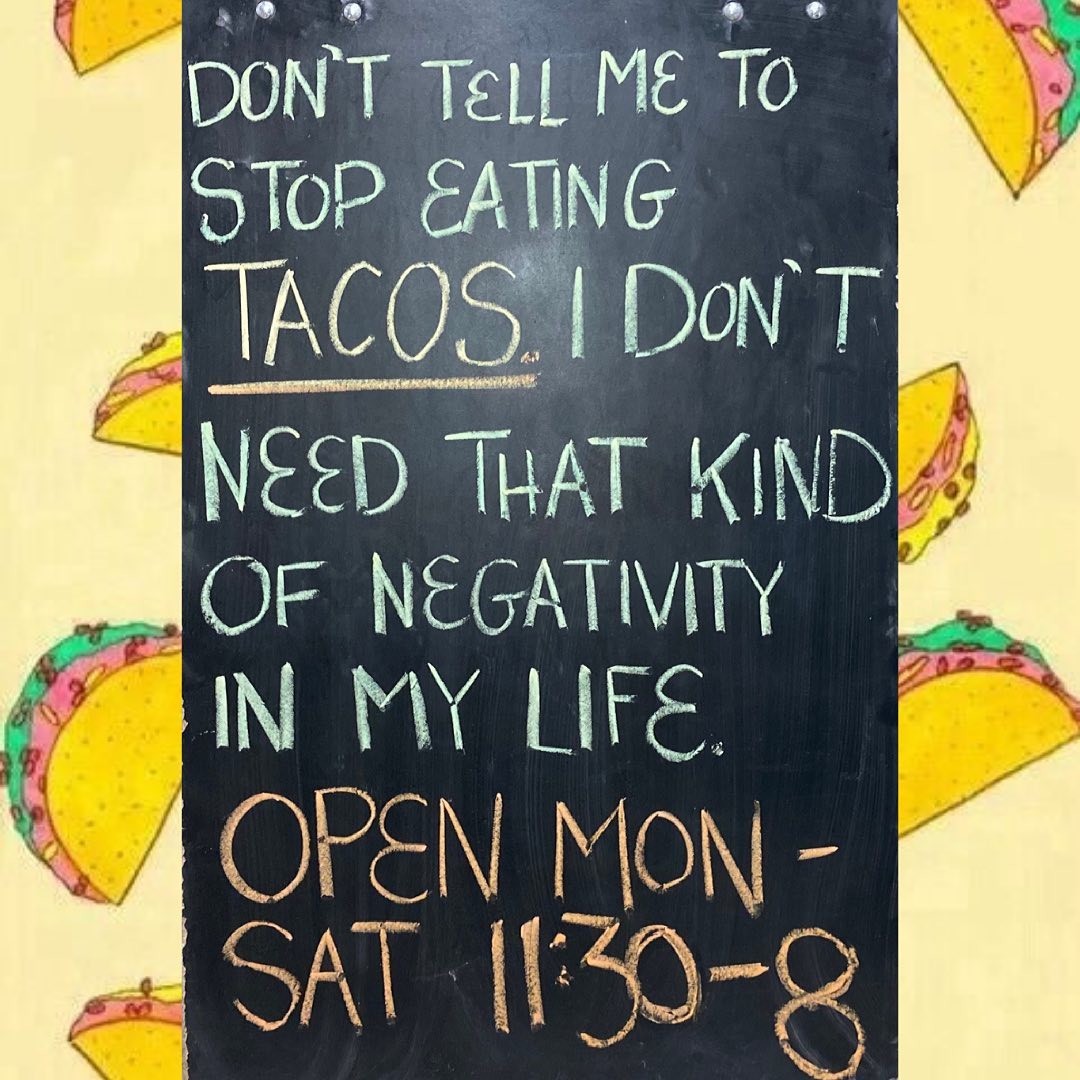 DON'T TELL ME TO
STOP EATING
TACOS. I DON'T
NEED THAT KIND
OF NEGATIVITY
IN MY LIFE.
OPEN MON -
SAT 11:30-8